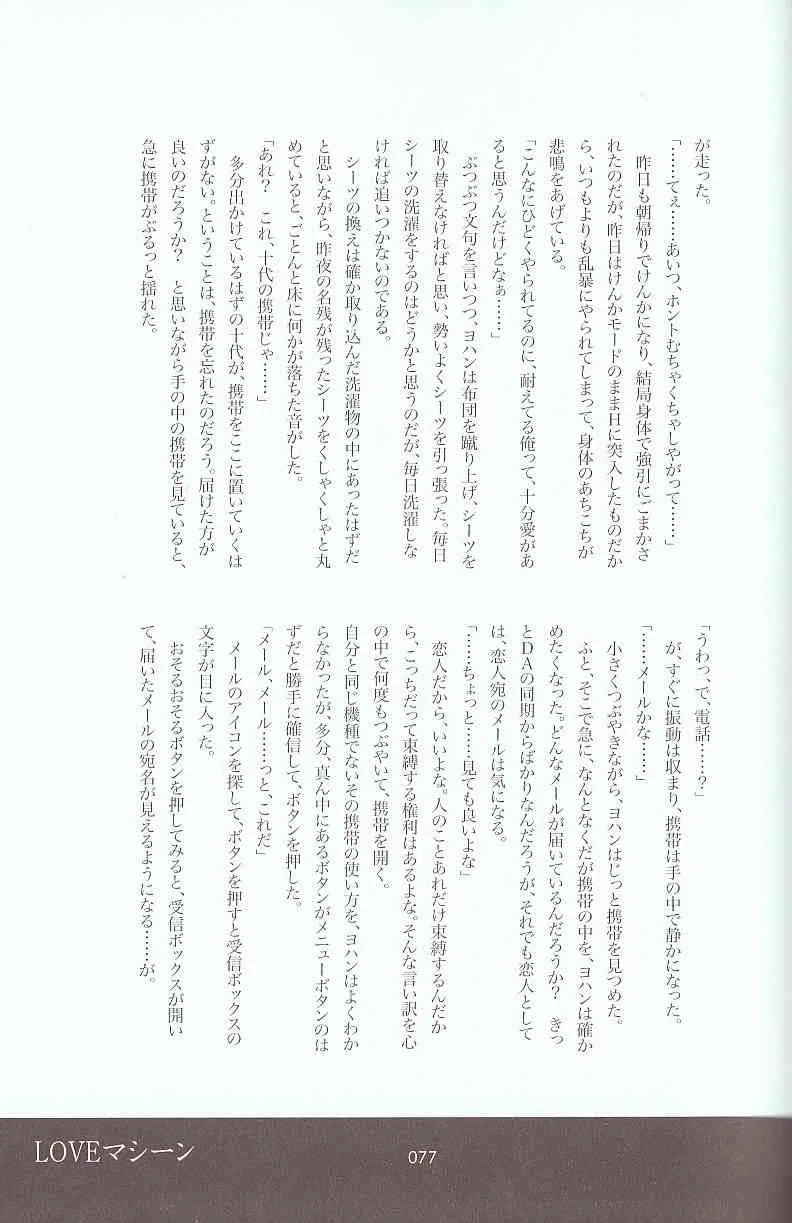 が走った。
「……てぇ……あいつ、ホントむちゃくちゃしやがって……」
昨日も朝帰りでけんかになり、結局身体で強引にごまかさ
れたのだが、昨日はけんかモードのままHに突入したものだか
ら、いつもよりも乱暴にやられてしまって、身体のあちこちが
悲鳴をあげている。
「こんなにひどくやられてるのに、耐えてる俺って、十分愛があ
ると思うんだけどなぁ……」
ぶつぶつ文句を言いつつ、ヨハンは布団を蹴り上げ、シーツを
取り替えなければと思い、勢いよくシーツを引っ張った。毎日
シーツの洗濯をするのはどうかと思うのだが、毎日洗濯しな
ければ追いつかないのである。
シーツの換えは確か取り込んだ洗濯物の中にあったはずだ
と思いながら、昨夜の名残が残ったシーツをくしゃくしゃと丸
めていると、ごとんと床に何かが落ちた音がした。
「あれ？　これ、十代の携帯じゃ……」
多分出かけているはずの十代が、携帯をここに置いていくは
ずがない。ということは、携帯を忘れたのだろう。届けた方が
良いのだろうか？　と思いながら手の中の携帯を見ていると、
急に携帯がぶるっと揺れた。
「うわっ、で、電話……？」
が、すぐに振動は収まり、携帯は手の中で静かになった。
「……メールかな……」
小さくつぶやきながら、ヨハンはじっと携帯を見つめた。
ふと、そこで急に、なんとなくだが携帯の中を、ヨハンは確か
めたくなった。どんなメールが届いているんだろうか？　きっ
とＤＡの同期からばかりなんだろうが、それでも恋人として
は、恋人宛のメールは気になる。
「……ちょっと……見ても良いよな」
恋人だから、いいよな。人のことあれだけ束縛するんだか
ら、こっちだって束縛する権利はあるよな。そんな言い訳を心
の中で何度もつぶやいて、携帯を開く。
自分と同じ機種でないその携帯の使い方を、ヨハンはよくわか
らなかったが、多分、真ん中にあるボタンがメニューボタンのは
ずだと勝手に確信して、ボタンを押した。
「メール、メール……っと、これだ」
メールのアイコンを探して、ボタンを押すと受信ボックスの
文字が目に入った。
おそるおそるボタンを押してみると、受信ボックスが開い
て、届いたメールの宛名が見えるようになる……が。
LOVEマシーン
077